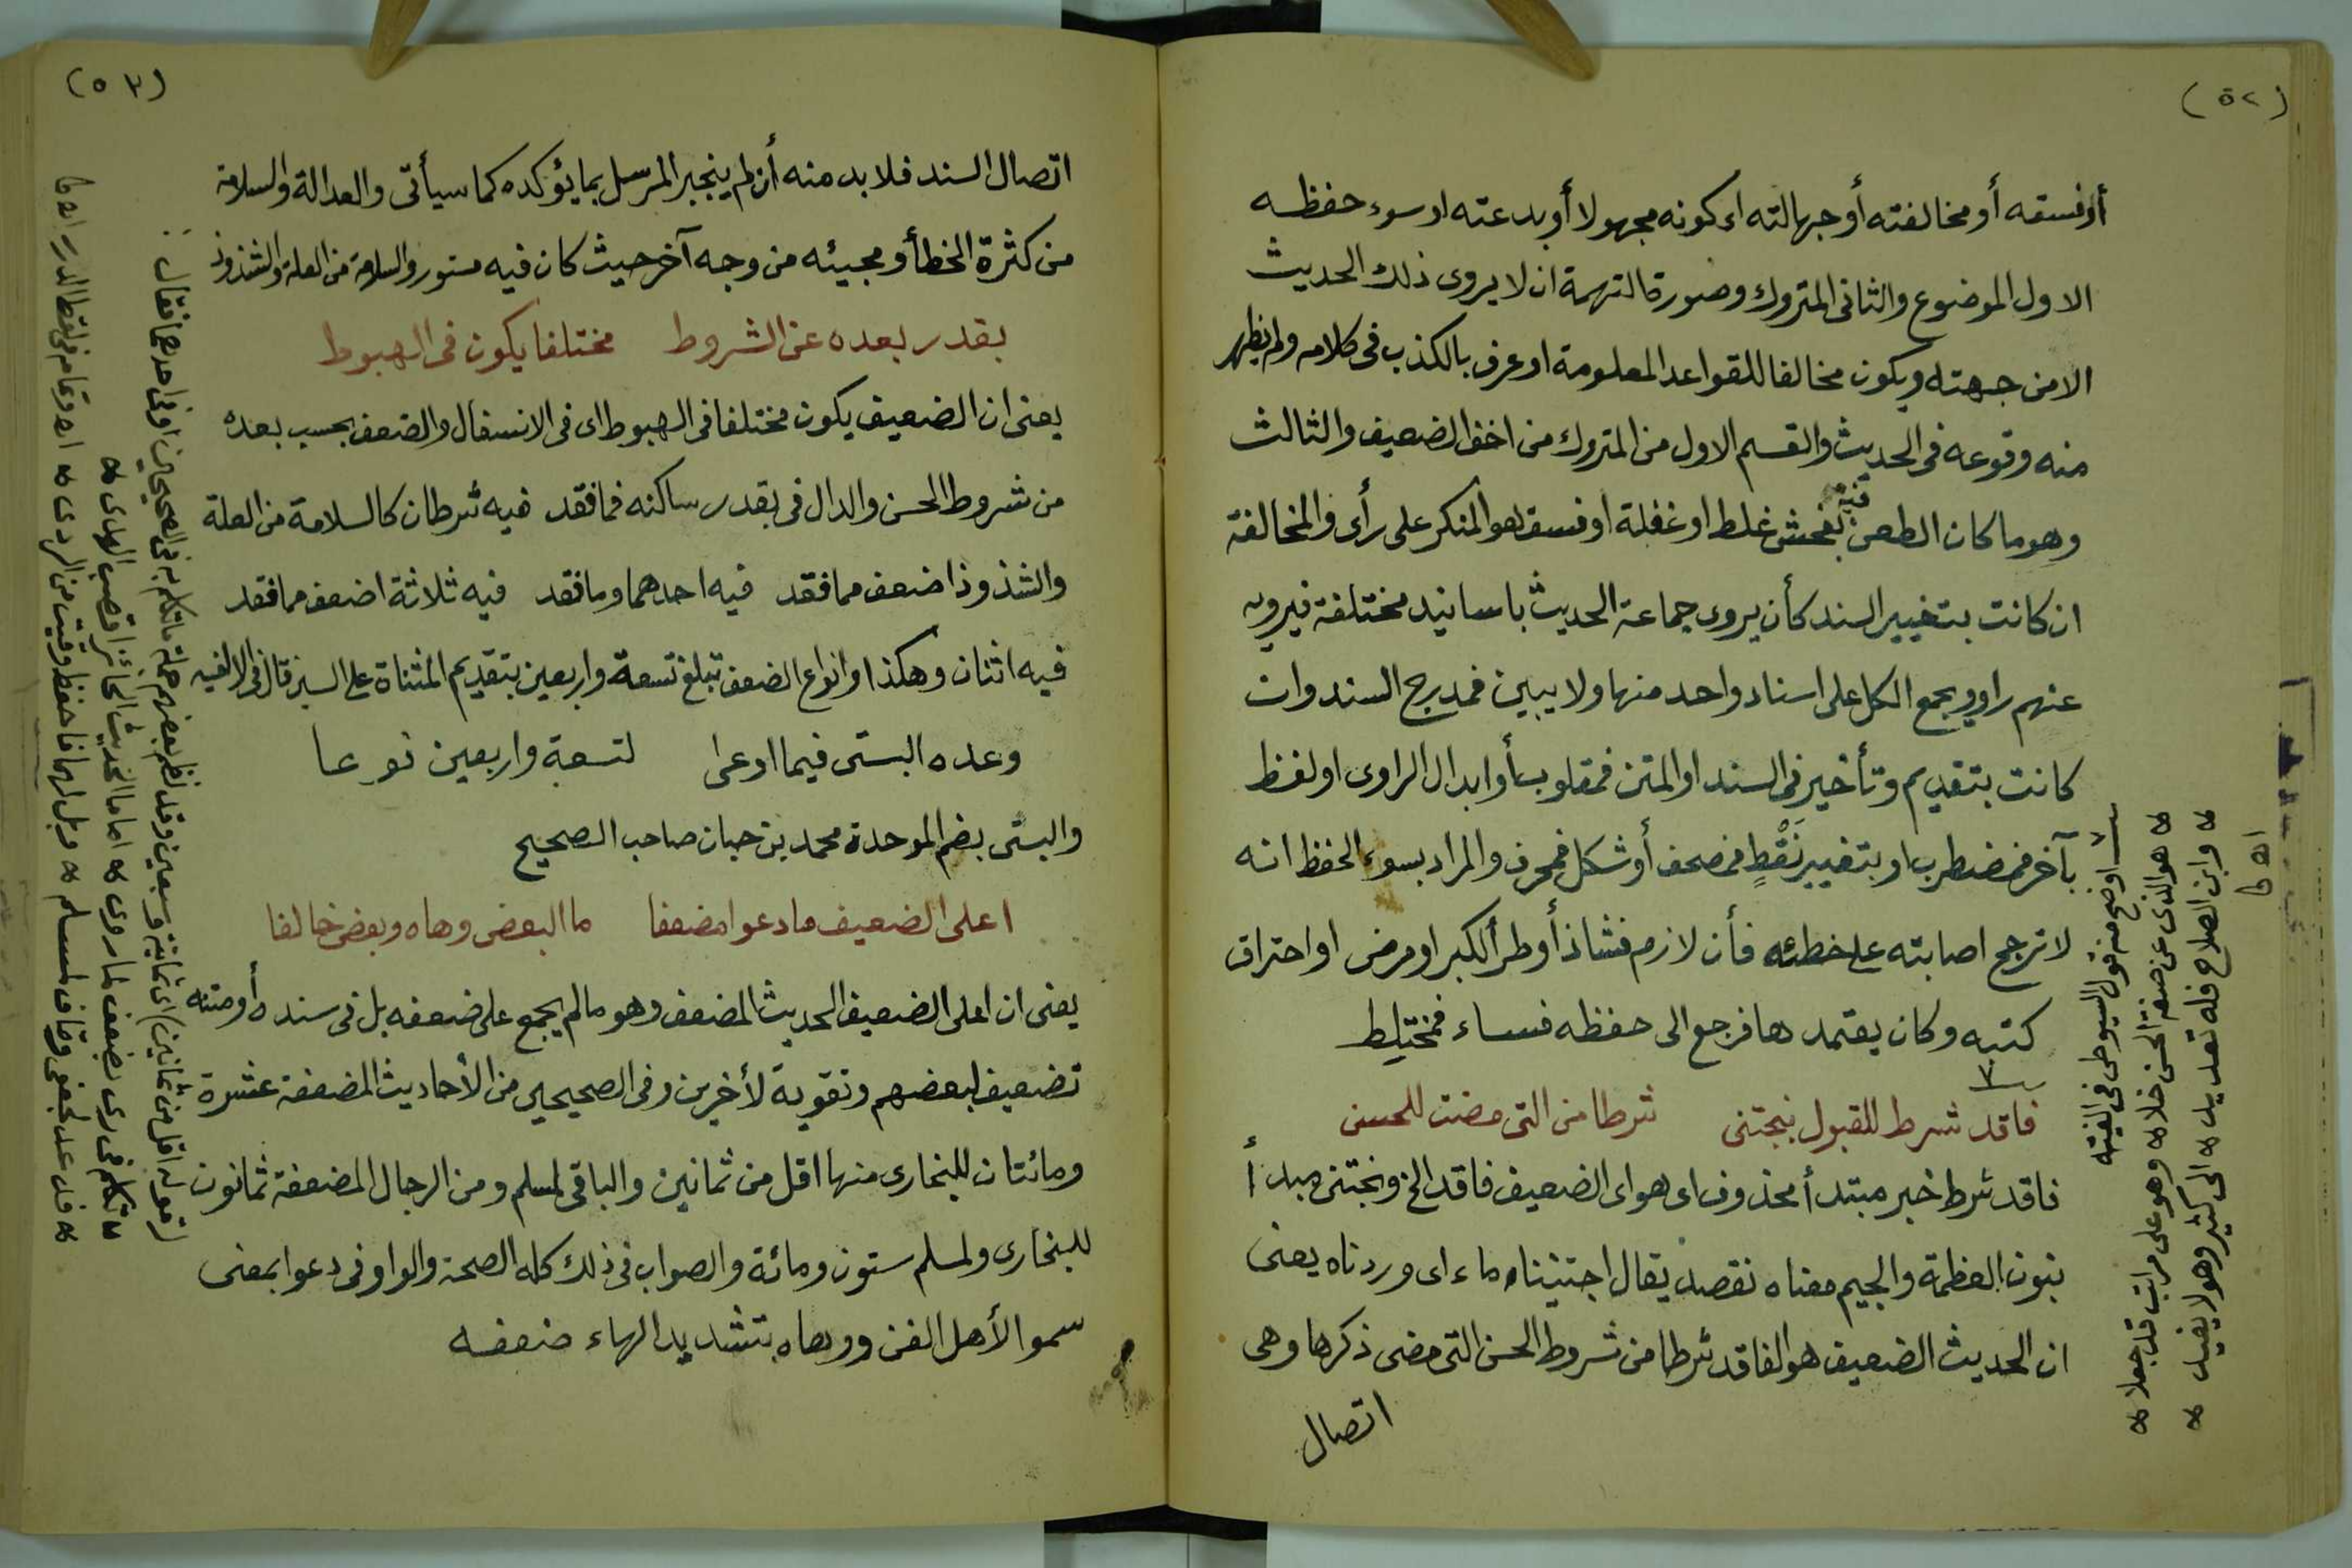 (٥٢)
أو فسقه أو مخالفته أو جهالته اى كونه مجهولا أو بدعته او سوء حفظه
الاول الموضوع والثانى المتروك وصورة التهمة ان لا يروى ذلك الحديث
الا من جهته ويكون مخالفا للقواعد المعلومة او عرف بالكذب فى كلامه ولم يظهر
منه وقوعه فى الحديث والقسم الاول من المتروك من اخف الضعيف والثالث
وهو ما كان الطعن فيه بفحش غلط او غفلة او فسق هو المنكر على رأى والمخالفة
ان كانت بتغيير السند كأن يروى جماعة الحديث باسانيد مختلفة فيرويه
عنهم راو ويجمع الكل على اسناد واحد منها ولا يبين فمدرج السند وان
كانت بتقديم وتأخير فى السند او المتن فمقلوب أو ابدال الراوى او لفظ
بآخر فمضطرب او بتغيير نَقْطٍ فمصحف أو شكل فمحرف والمراد بسوء الحفظ انه
لا ترجح اصابته على خطئه فأن لازم فشاذ أو طرأ لكبر او مرض او احتراق
كتبه وكان يعتمدها فرجع الى حفظه فساء فمختلِط
فاقد شرط للقبول نجتنى شرطا من التى مضت للحسن
فاقد شرط خبر مبتدأ محذوف اى هو اى الضعيف فاقد الخ ونجتنى مبدأ
بنون العظمة والجيم معناه نقصد يقال اجتنيناه ماء اى وردناه يعنى
ان الحديث الضعيف هو الفاقد شرطا من شروط الحسن التى مضى ذكرها وهى
اتصال
اوضح منه قول السيوطى فى الفيته
هو الذى عن صفة الحسن خلا وهو على مراتب قد جعلا
وابن الصلاح فله تعديد الى كثير وهو لا يفيد
اه
(٥٣)
اتصال السند فلا بد منه أن لم ينجبر المرسل بما يؤكده كما سيأتى والعدالة والسلامة
من كثرة الخطأ ومجيئه من وجه آخر حيث كان فيه مستور والسلامة من العلة والشذوذ
بقدر بعده عن الشروط مختلفا يكون فى الهبوط
يعنى ان الضعيف يكون مختلفا فى الهبوط اى فى الانسفال والضعف بحسب بعده
من شروط الحسن والدال فى بقدر ساكنه فما فقد فيه شرطان كالسلامة من العلة
والشذوذ اضعف مما فقد فيه احدهما وما فقد فيه ثلاثة اضعف مما فقد
فيه اثنان وهكذا وانواع الضعف تبلغ تسعة واربعين بتقديم المثناة على السين قال فى الالفيه
وعده البستى فيما ادعى لتسعة واربعين نوعا
والبستى بضم الموحدة محمد بن حبان صاحب الصحيح
اعلى الضعيف ما دعوا مضعفا ما البعض وهاه وبعض خالفا
يعنى ان اعلى الضعيف الحديث المضعف وهو ما لم يجمع على ضعفه بل فى سنده أو متنه
تضعيف لبعضهم وتقوية لأخرين وفى الصحيحين من الأحاديث المضعفة عشرة
ومائتان للبخارى منها اقل من ثمانين والباقى لمسلم ومن الرجال المضعفة ثمانون
للبخارى ولمسلم ستون ومائة والصواب فى ذلك كله الصحة والواو فى دعوا بمعنى
سموا لأهل الفن ووهاه بتشديد الهاء ضعفه
(قوله اقل من ثمانين) اى ثمانية وسبعين وقد نظم بعضهم جملة ما تكلم به فى الصحيحين او فى احدهما فقال